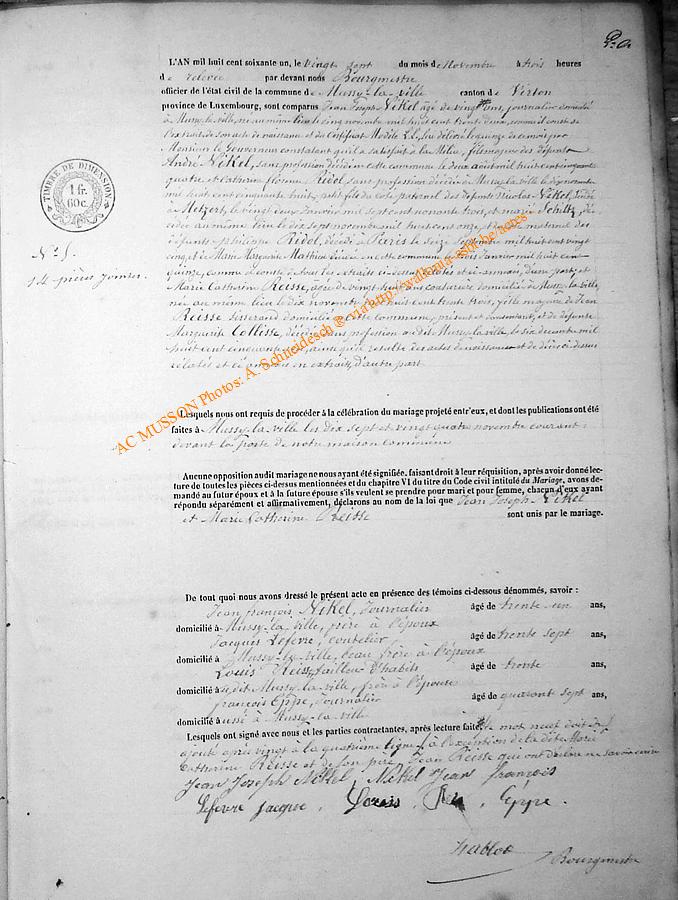 L'AN mil huit cent soixante un, le vingt sept du mois de Novembre à trois heures
de relevée par devant nous Bourgmestre
officier de l'état civil de la commune de Mussy-la-ville canton de Virton
province de Luxembourg, sont comparus Jean Joseph Nikel âgé de vingt ans, journalier domicilié
à Mussy-la-ville, né au même lieu le cinq novembre mil huit cent trente deux, comme il conste de
l'extrait de son acte de naissance et du Certificat Modèle LL. lui délivré le quinze de ce mois par
Monsieur le Gouverneur constatant qu'il a satisfait à la Milice, fils majeur des défunts
André Nikel, sans profession décédé en cette commune le deux août mil huit cent cinquante
quatre et Catherine Ridel sans profession décédée à Mussy-la-ville le
mil huit cent cinquante huit, petit fils du coté paternel des défunts Nicolas Nikel, décédé
à Metzert, le vingt deux Janvier mil sept cent nonante trois, et Marie Schiltz, dé
cédée au même lieu le dix sept novembre mil huit cent onze, et du maternel des
défunts philippe Ridel, décédé à Paris le seize mil huit cent vingt
cinq et de Marie Marguerite Mathieu décédée en cette commune trois Janvier mil huit cent
quinze, comme il conste de tous les extraits ci-dessus relatés et ci-annexés, d'une part, et
Marie Catherine Reisse, agée de vingt huit ans couturière domiciliée à Mussy-la-ville,
née au même lieu le dix novembre mil huit cent trente trois, fille majeure de Jean
Reisse tisserand domicilié en cette commune, présent et consentant, et de défunte
Marguerite Collisse, décédée sans profession audit Mussy-la-ville, le six décembre mil
huit cent cinquante ainsi qu'il resulte des actes de naissance et de décès ci-dessus
relatés et ci annexés en extraits, d'autre part.
TIMBRE DE DIMENSION
1 fr.
60 c.
N° 5.
14 pièces jointes.
AC MUSSON Photos: A. Schneidesch ® via http://wallonia-asbl.be/actes
Lesquels nous ont requis de procéder à la célébration du mariage projeté entr'eux, et dont les publications ont été
faites à Mussy-la-ville les dix sept et vingt quatre novembre courant
devant la porte de notre maison commune
Aucune opposition audit mariage ne nous ayant été signifiée, faisant droit à leur réquisition, après avoir donné lec-
ture de toutes les pièces ci-dessus mentionnées et du chapitre VI du titre du Code civil intitulé du Mariage, avons de-
mandé au futur époux et à la future épouse s'ils veulent se prendre pour mari et pour femme, chacun d'eux ayant
répondu séparément et affirmativement, déclarons au nom de la loi que Jean Joseph Nikel
et Marie Catherine Reisse sont unis par le mariage.
De tout quoi nous avons dressé le présent acte en présence des témoins ci-dessous dénommés, savoir :
Jean françois Nikel, Journalier âgé de trente un ans,
domicilié à Mussy-la-ville, frère à l'époux
Jacques Lefevre, coutelier âgé de trente sept ans,
domicilié à Mussy-la-ville, beau frère à l'époux
Louis Reiss, tailleur d'habits âgé de trente ans,
domicilié audit Mussy-la-ville, frère à l'épouse
françois Eppe, Journalier âgé de quarant sept ans,
domicilié aussi à Mussy-la-ville
Lesquels ont signé avec nous et les parties contractantes, après lecture faite le mot neuf doit être
ajouté après vingt à la quatrième ligne, à l'exception de ladite Marie
Catherine Reisse et de son père Jean Reisse qui ont déclaré ne savoir écrire
Jean Joseph Nikel, Nikel Jean françois
Lefevre Jacque, Louis Reis, Eppe.
Bourgmestre